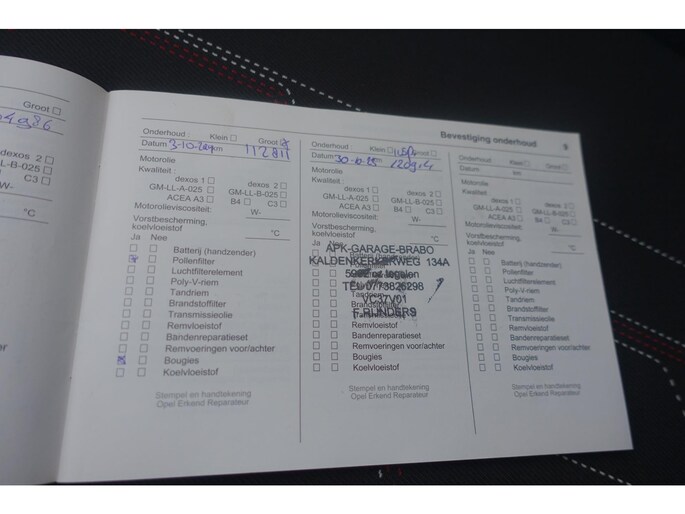 Groot
04986
dexos 2
GM-LL-B-025
C3
W-
°C
Bevestiging onderhoud 9
Onderhoud : Klein Groot
Datum 3-10- km 112811
Motorolie
Kwaliteit :
dexos 1 dexos 2
GM-LL-A-025 GM-LL-B-025
ACEA A3 B4 C3
Motorolieviscositeit: W-
Vorstbescherming, koelvloeistof °C
Ja Nee
Batterij (handzender)
Pollenfilter
Luchtfilterelement
Poly-V-riem
Tandriem
Brandstoffilter
Transmissieolie
Remvloeistof
Bandenreparatieset
Remvoeringen voor/achter
Bougies
Koelvloeistof
Stempel en handtekening
Opel Erkend Reparateur
Onderhoud : Klein Groot
Datum 30-10- km
Motorolie
Kwaliteit :
dexos 1 dexos 2
GM-LL-A-025 GM-LL-B-025
ACEA A3 B4 C3
Motorolieviscositeit: W-
Vorstbescherming, koelvloeistof °C
Ja Nee
APK-GARAGE-BRABO
KALDENKERKERWEG 134A
tegelen
TEL 0773826298
F RIJNDERS
Tandriem
Transmissieolie
Remvloeistof
Bandenreparatieset
Remvoeringen voor/achter
Bougies
Koelvloeistof
Stempel en handtekening
Opel Erkend Reparateur
Onderhoud : Klein Groot
Datum km
Motorolie
Kwaliteit :
dexos 1 dexos 2
GM-LL-A-025 GM-LL-B-025
ACEA A3 B4 C3
Motorolieviscositeit: W-
Vorstbescherming, koelvloeistof °C
Ja Nee
Batterij (handzender)
Pollenfilter
Luchtfilterelement
Poly-V-riem
Tandriem
Brandstoffilter
Transmissieolie
Remvloeistof
Bandenreparatieset
Remvoeringen voor/achter
Bougies
Koelvloeistof
Stempel en handtekening
Opel Erkend Reparateur